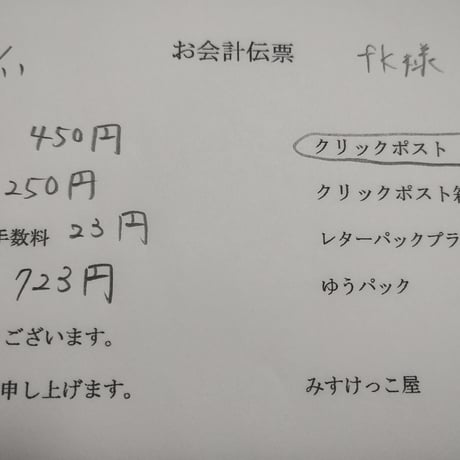 お会計伝票 fk様
450円 クリックポスト
250円 クリックポスト箱
手数料 23円 レターパックプラ
723円 ゆうパック
ございます。
申し上げます。 みすけっこ屋